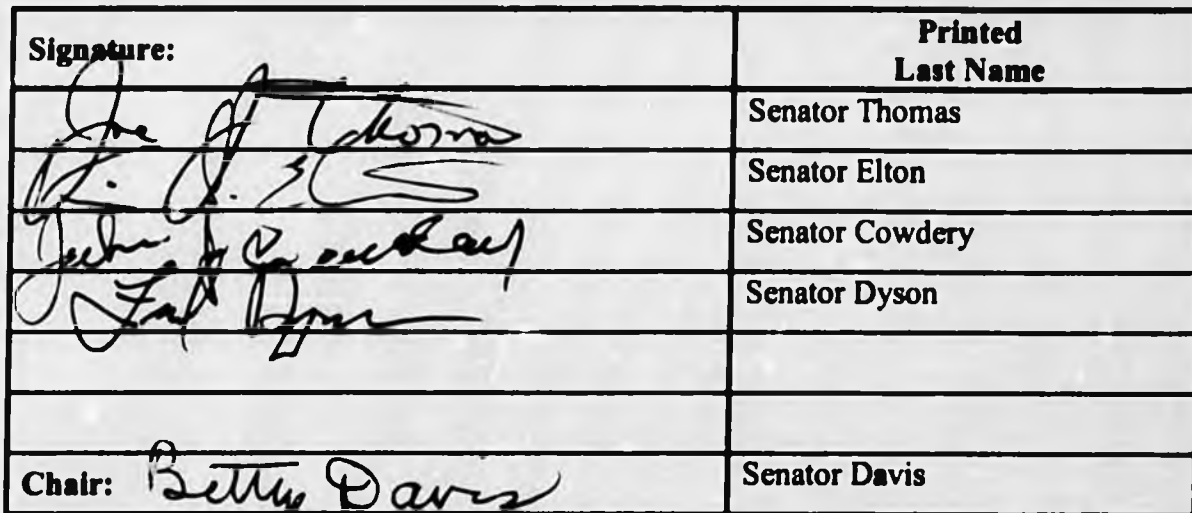 Signature: Printed
Last Name
Joe J Thomas Senator Thomas
Kim Senator Elton
John Cowdery Senator Cowdery
Fred Dyson Senator Dyson
Chair: Bettye Davis Senator Davis